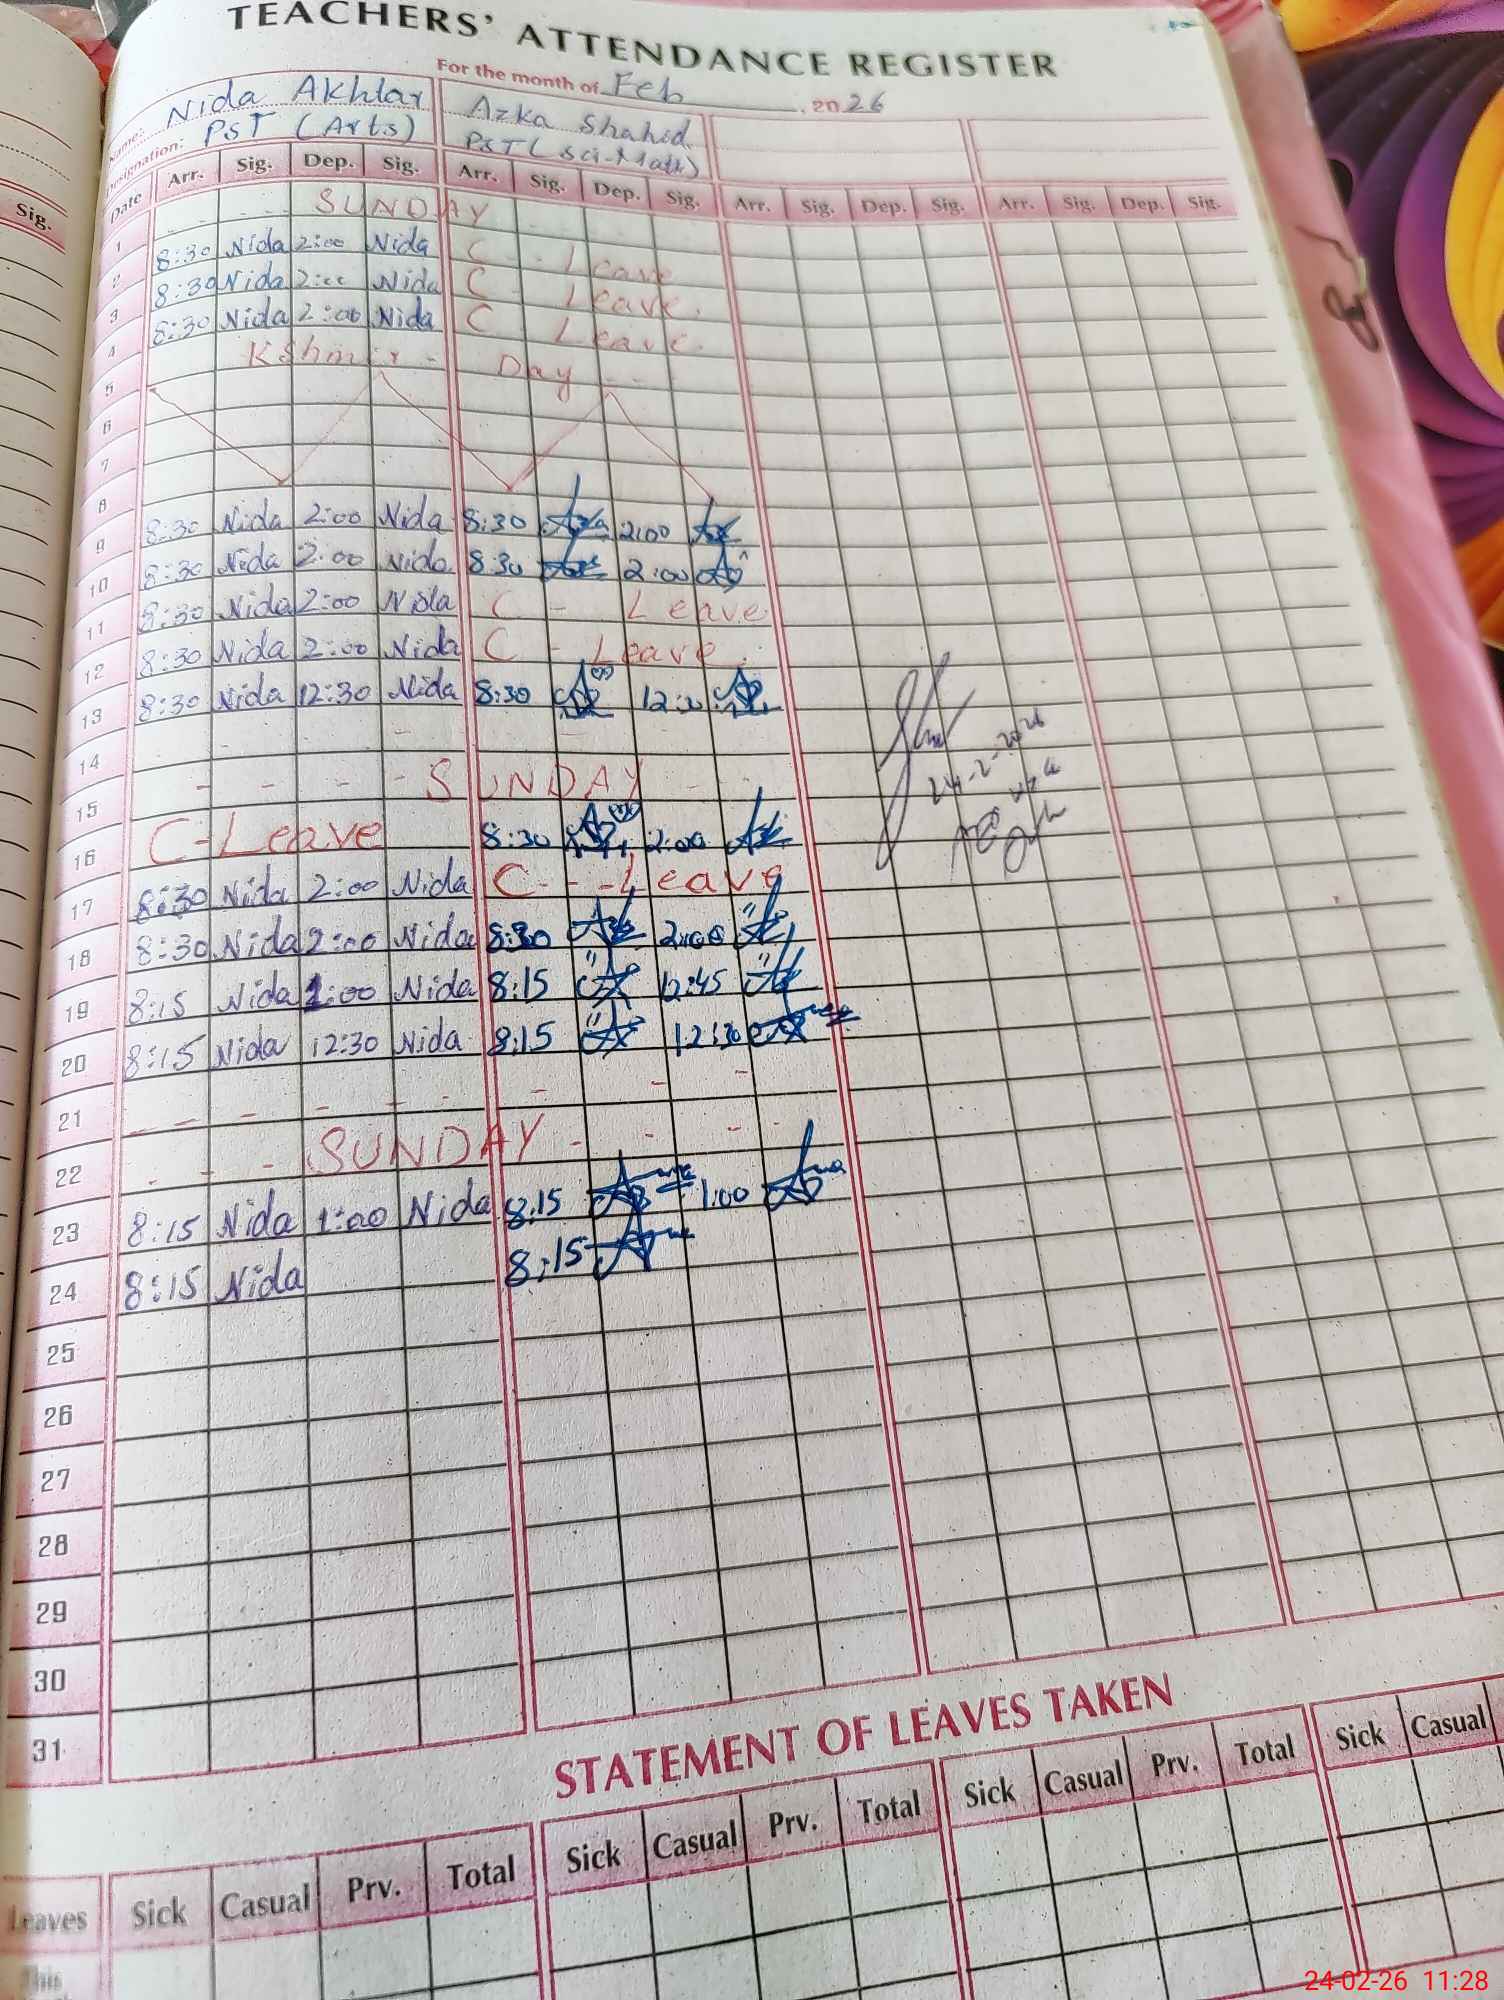 TEACHERS' ATTENDANCE REGISTER
For the month of Feb, 2026
Name: Nida Akhtar Azka Shahid
Designation: PST (Arts) PST (Sci-Math)
Sig.
Date Arr. Sig. Dep. Sig. Arr. Sig. Dep. Sig. Arr. Sig. Dep. Sig. Arr. Sig. Dep. Sig.
1 - - - SUNDAY
2 8:30 Nida 2:00 Nida C - - Leave
3 8:30 Nida 2:00 Nida C - Leave.
4 8:30 Nida 2:00 Nida C Leave.
5 Kshmir - Day - -
6
7
8
9 8:30 Nida 2:00 Nida 8:30 2:00
10 8:30 Nida 2:00 Nida 8:30 2:00
11 8:30 Nida 2:00 Nida C - Leave
12 8:30 Nida 2:00 Nida C - Leave.
13 8:30 Nida 12:30 Nida 8:30
14 - - - - - - -
15 - - - - SUNDAY - -
16 C-Leave 8:30 2:00
17 8:30 Nida 2:00 Nida C - - - Leave
18 8:30 Nida 2:00 Nida 8:30 2:00
19 8:15 Nida 1:00 Nida 8:15 12:45
20 8:15 Nida 12:30 Nida 8:15 12:30
21 - - - - - - - -
22 - - - SUNDAY - - - -
23 8:15 Nida 1:00 Nida 8:15 1:00
24 8:15 Nida 8:15
25
26
27
28
29
30
31
24-2-2026
STATEMENT OF LEAVES TAKEN
Leaves Sick Casual Prv. Total Sick Casual Prv. Total Sick Casual Prv. Total Sick Casual
This
24-02-26 11:28